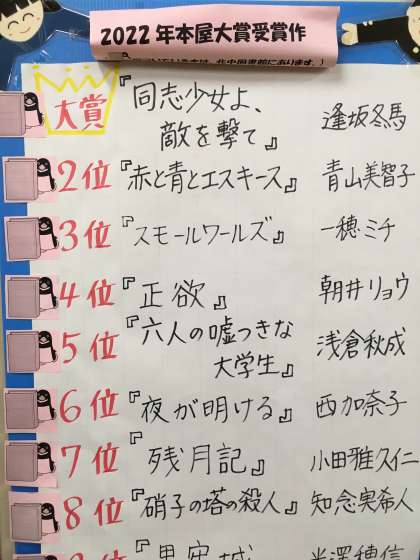 2022年本屋大賞受賞作
大賞 『同志少女よ、
敵を撃て』 逢坂冬馬
2位 『赤と青とエスキース』 青山美智子
3位 『スモールワールズ』 一穂ミチ
4位 『正欲』 朝井リョウ
5位 『六人の嘘つきな
大学生』 浅倉秋成
6位 『夜が明ける』 西加奈子
7位 『残月記』 小田雅久仁
8位 『硝子の塔の殺人』 知念実希人
黒牢城 米澤穂信